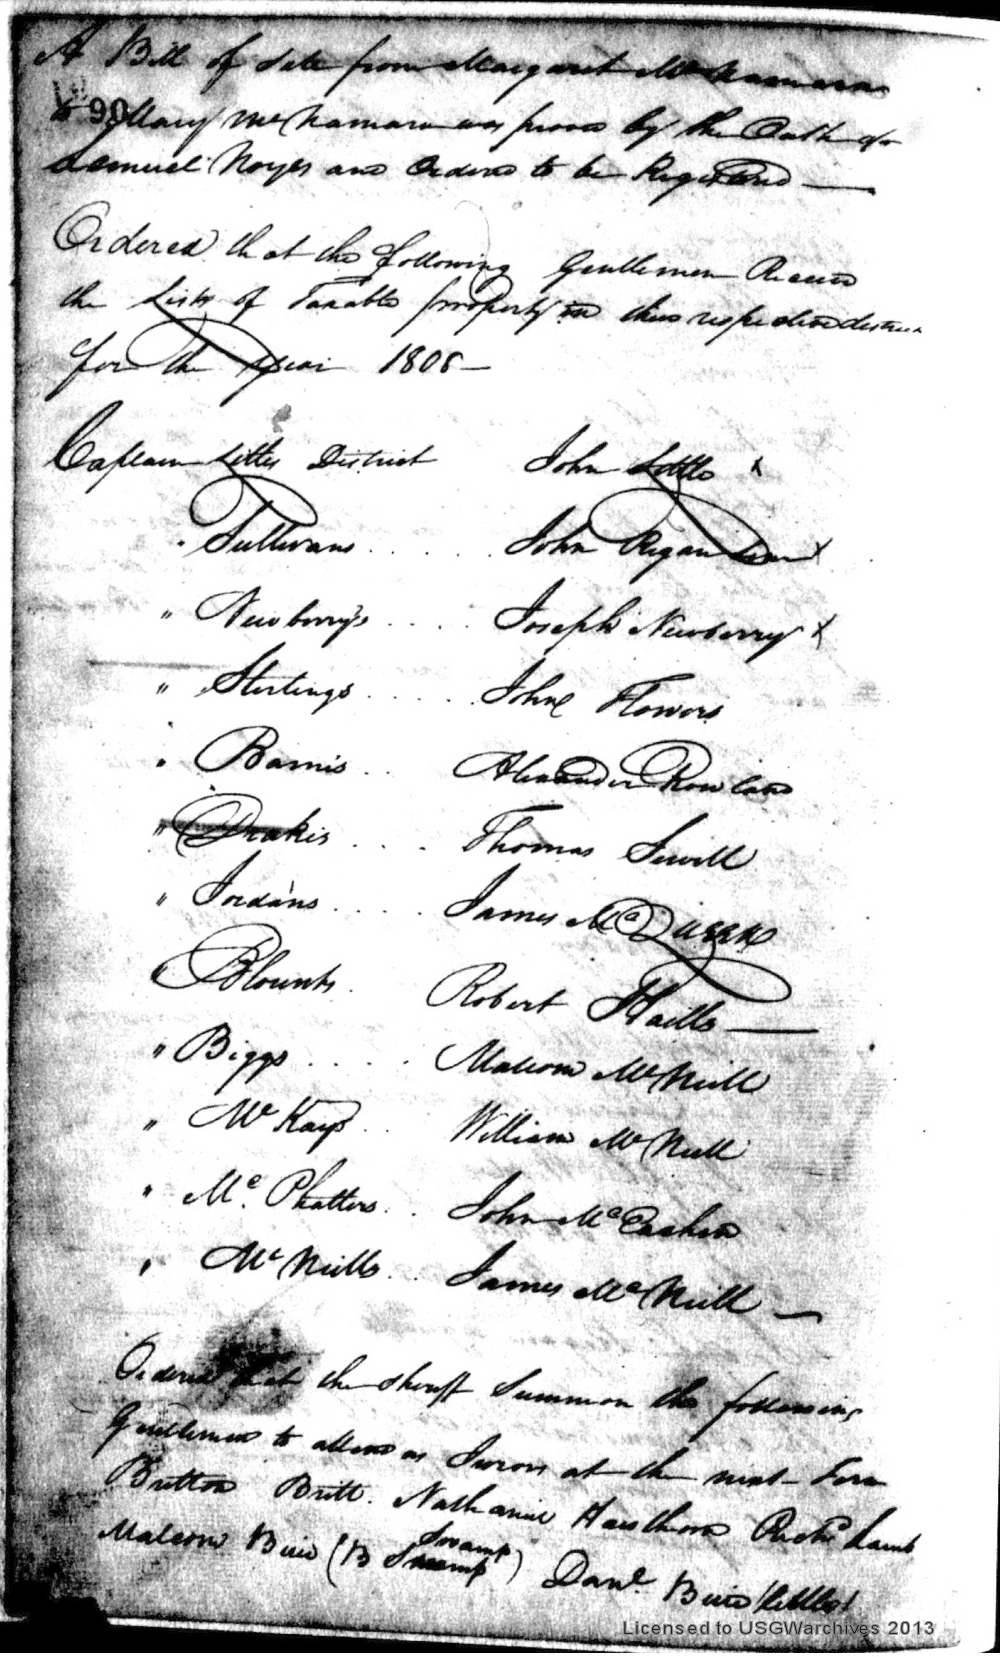 A Bill of Sale from Margaret McNamara
90
to Mary McNamara was proven by the Oath of
Samuel Noyes and Ordered to be Registered
Ordered that the following Gentlemen Receive
the Lists of Taxable property in their respective districts
for the year 1806
Captain Littles District John Little x
" Sullivans . . . . . John Regan Senr x
" Newberry's . . . . Joseph Newberry x
" Sterlings . . . . . John Flowers
" Barnes . . Alexander Rowland
" Drakes . . . . Thomas Sewell
" Jordans . . . . James McQueen
" Blounts . Robert Hails
" Biggs . . . . Malcom McNeill
" McKays . . William McNeill
" McPhatters . . John McEachin
" McNeills . . James McNeill
Ordered that the Sheriff Summon the following
Gentlemen to attend as Jurors at the next Term
Britton Britt. Nathaniel Hawthorn Richd Lamb
Swamp
Malcom Buie (B Swamp) Danl. Buie
Licensed to USGWarchives 2013